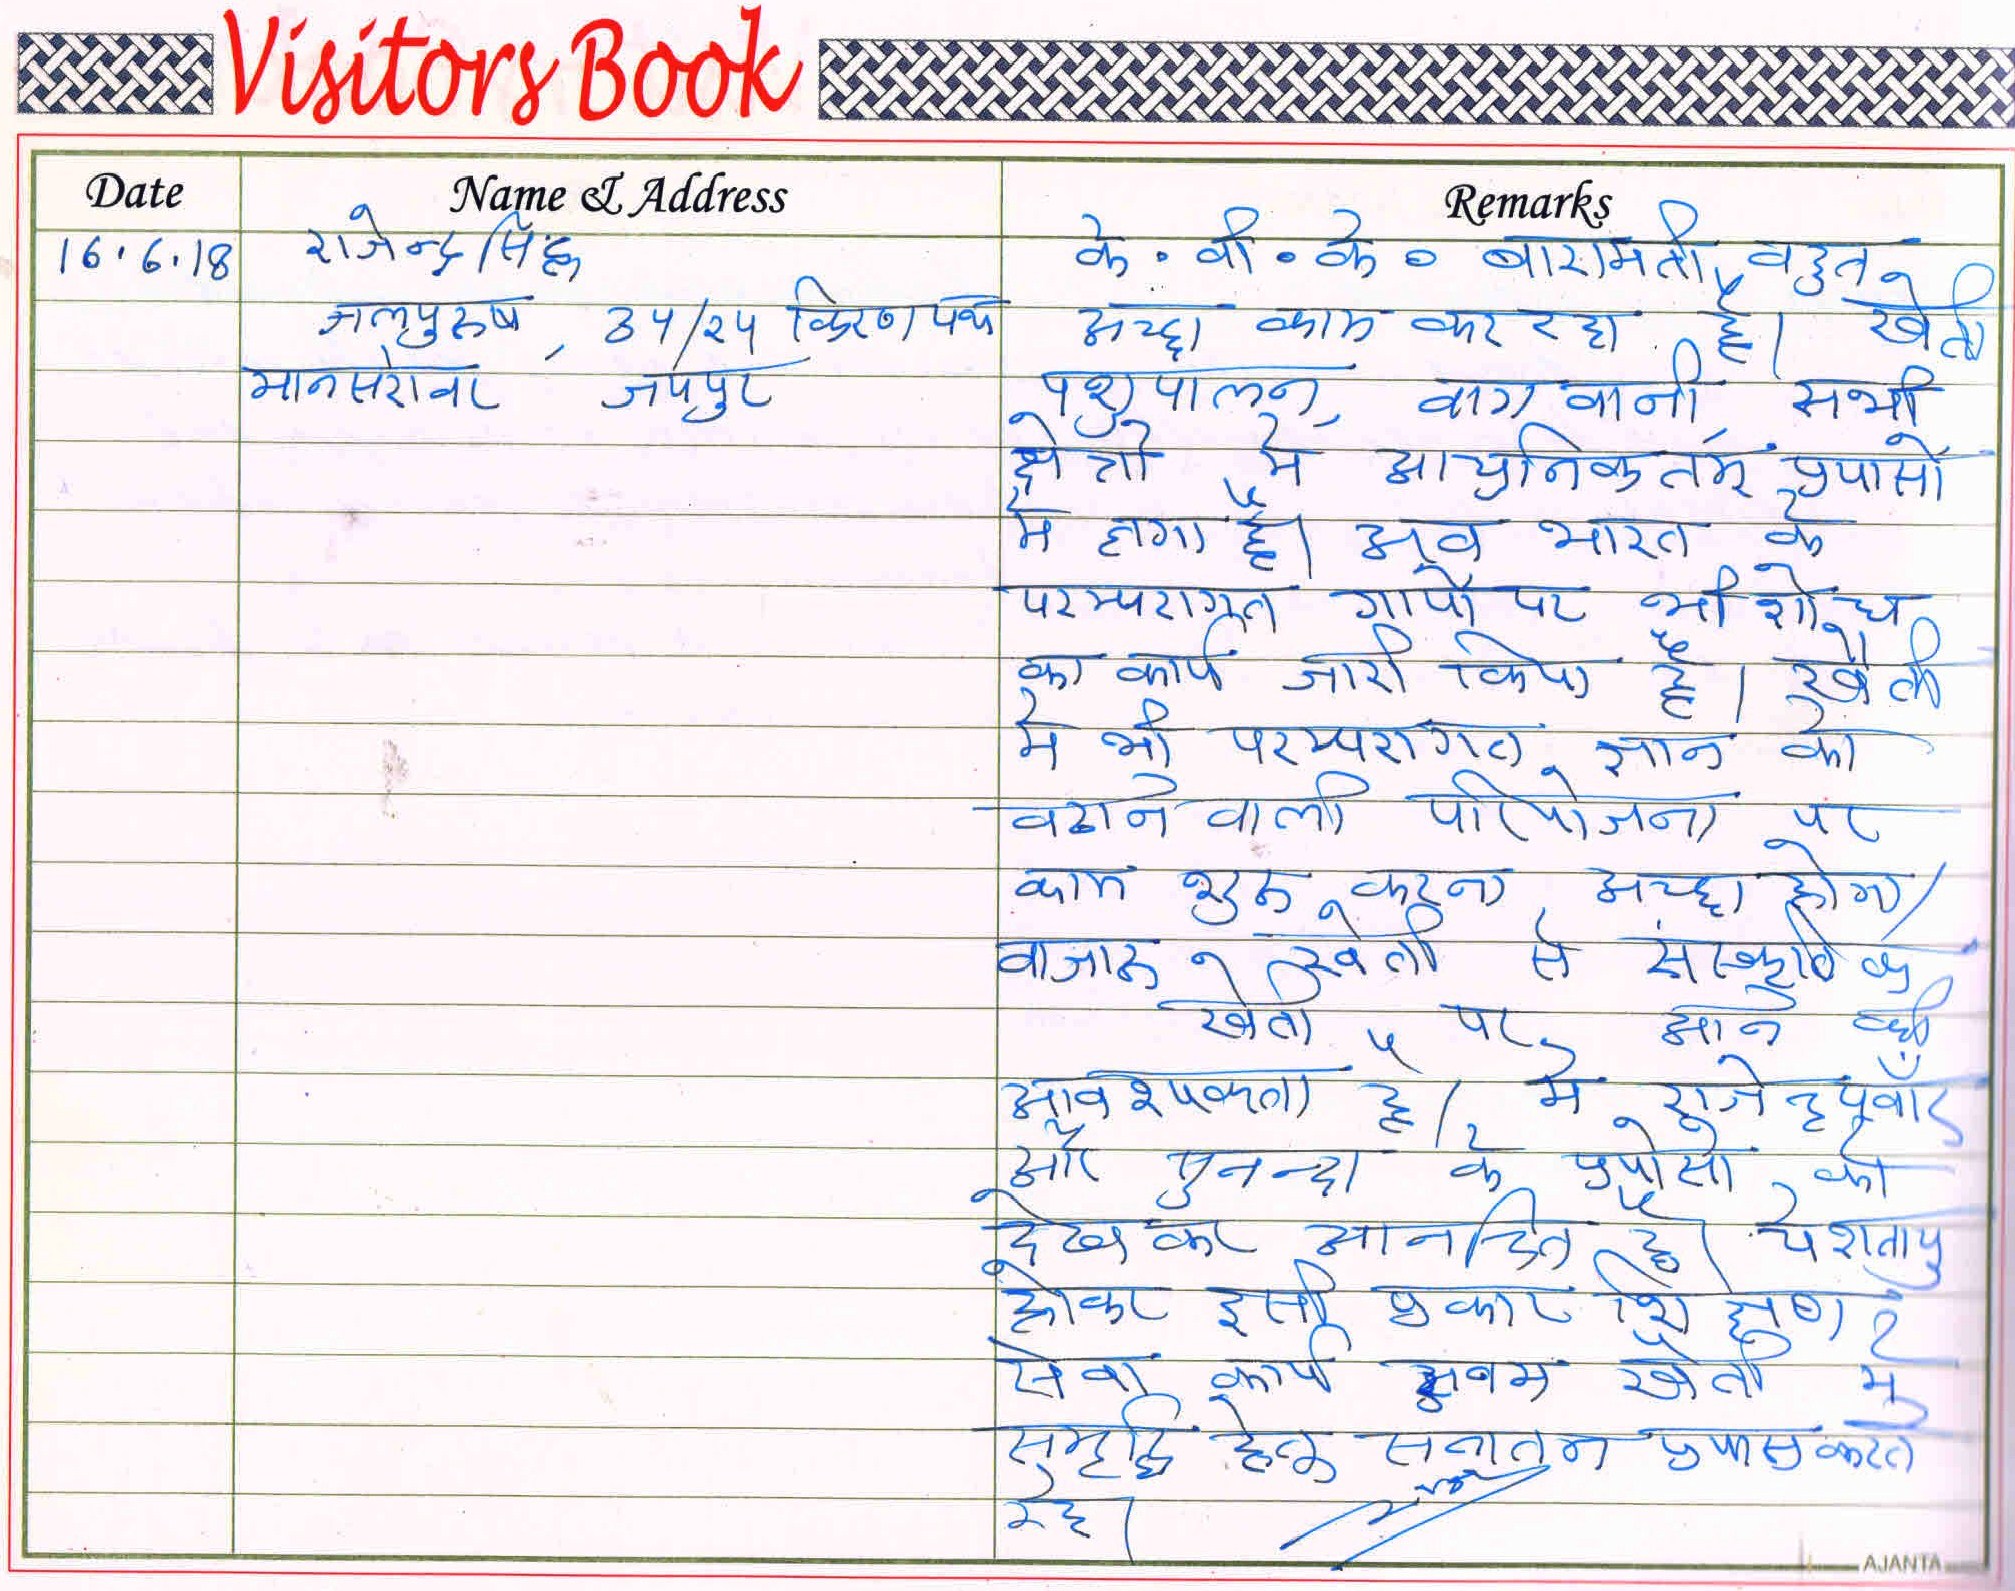 Visitors Book
Date Name & Address Remarks
16.6.18 राजेन्द्र सिंह
जलपुरुष, 34/24 किरण पथ
मानसरोवर जयपुर
के. वी. के. बारामती, बहुत
अच्छा काम कर रहा है। खेती
पशुपालन, बागवानी, सभी
क्षेत्रों में आधुनिकतम् प्रयासों
में लगा है। अब भारत के
परम्परागत गायों पर भी शोध
का कार्य जारी किया है। खेती
में भी परम्परागत ज्ञान को
बढाने वाली परियोजना पर
काम शुरू करना अच्छा होगा।
बाजारू खेती से संस्कृति क
खेती पर आने की
आवश्यकता है। मैं राजेन्द्र पवार
और सुनन्दा के प्रयासों को
देखकर आनन्दित हूँ।
होकर इसी प्रकार शिक्षण
सेवा कार्य एवम खेती में
समृद्धि हेतू सनातन प्रयास करते
रहे।
AJANTA